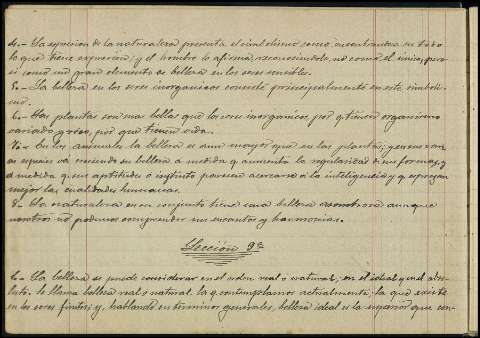 4.- La expresion de la naturaleza presenta el simbolismo como encontrandose en todo
lo que tiene expresion, y el hombre lo afirma reconociendolo, no como el único, pero
si como un gran elemento de belleza en los seres sensibles.
5.- La belleza en los seres inorganicos consiste principalmente en este simbolis-
mo.
6.- Las plantas son mas bellas que los seres inorganicos, por q. tienen organismo
variado y rico, por que tienen vida.
7.- En los animales la belleza es aun mayor que en las plantas; y en sus varias
especies va creciendo su belleza a medida q. aumenta la regularidad de sus formas, y
á medida q. sus aptitudes o instinto parecen acercarse á la inteligencia y q. expresan
mejor las cualidades humanas.
8.- La naturaleza en su conjunto tiene una belleza asombrosa aunque
nosotros no podemos comprender sus encantos y harmonias.
Leccion 9ª
1.- La belleza se puede considerar en el orden real o natural, en el ideal y en el abso-
luto. Se llama belleza real o natural la q. contemplamos actualmente; la que existe
en los seres finitos; y, hablando en terminos generales, belleza ideal es la superior que con-